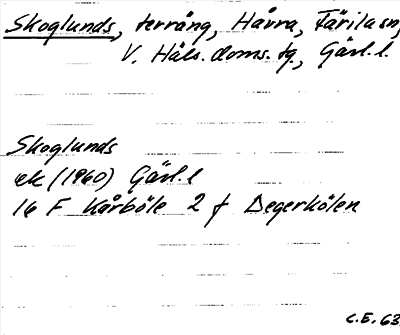 Skoglunds, terräng, Hårra, Färila sn,
V. Häls. doms. tg, Gävl. l.
Skoglunds
ek (1960) Gävl. l
16 F Kårböle 2 f Degerkölen
C.E. 63